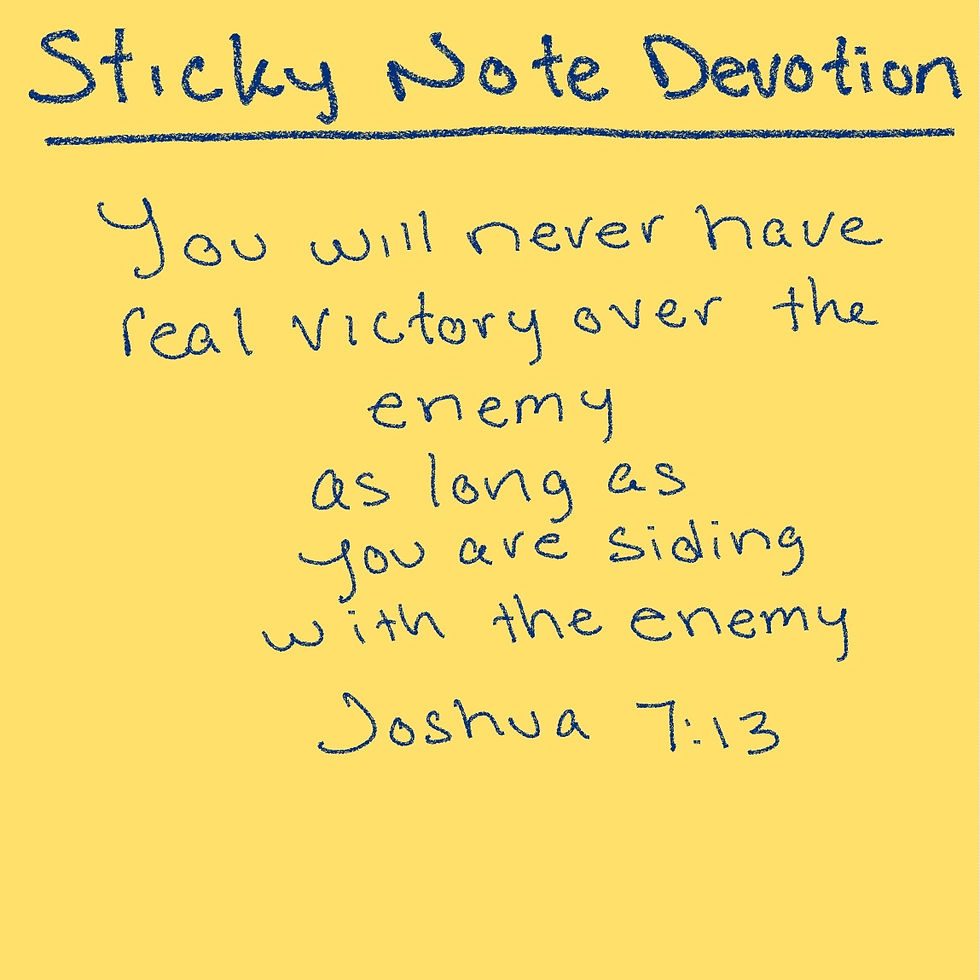 Sticky Note Devotion
You will never have
real victory over the
enemy
as long as
you are siding
with the enemy
Joshua 7:13